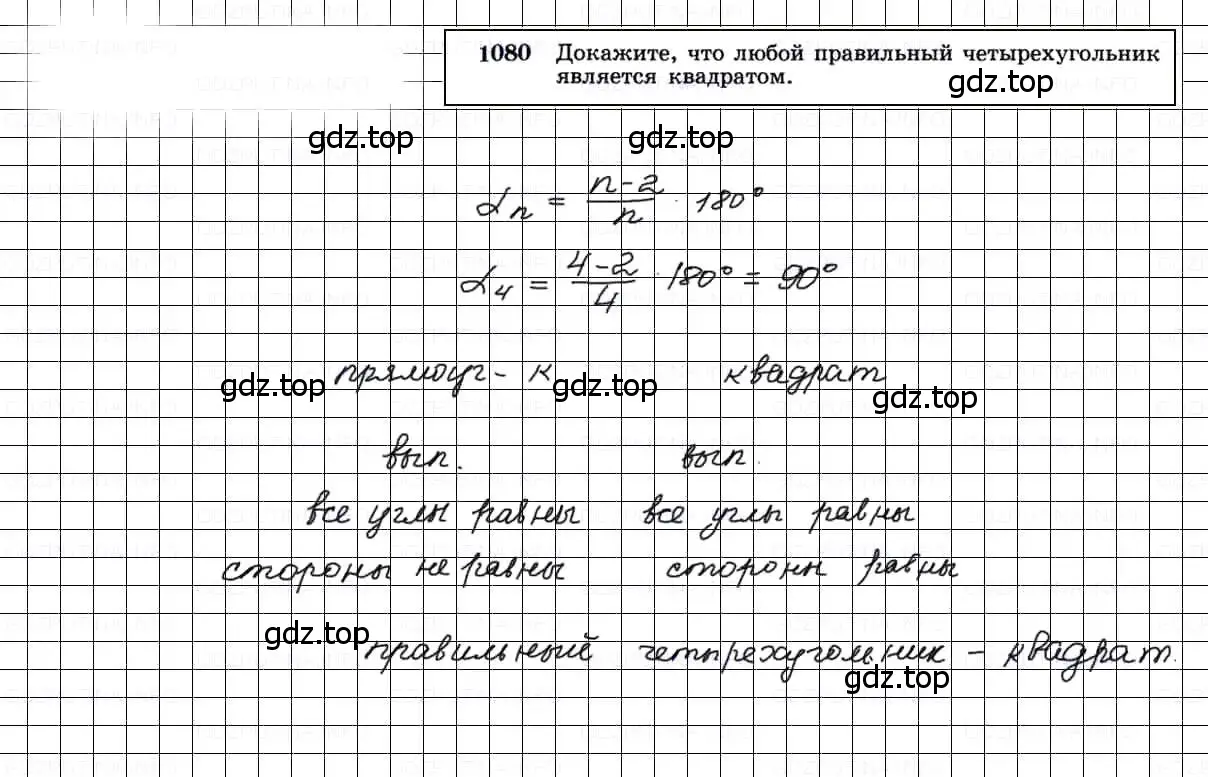 1080 Докажите, что любой правильный четырехугольник
является квадратом.
gdz.top
gdz.top gdz.top
αn = (n-2)/n · 180°
α4 = (4-2)/4 · 180° = 90°
прямоуг-к квадрат
gdz.top gdz.top gdz.top
вып. вып.
все углы равны все углы равны
стороны не равны стороны равны
gdz.top
правильный четырехугольник - квадрат.
gdz.top